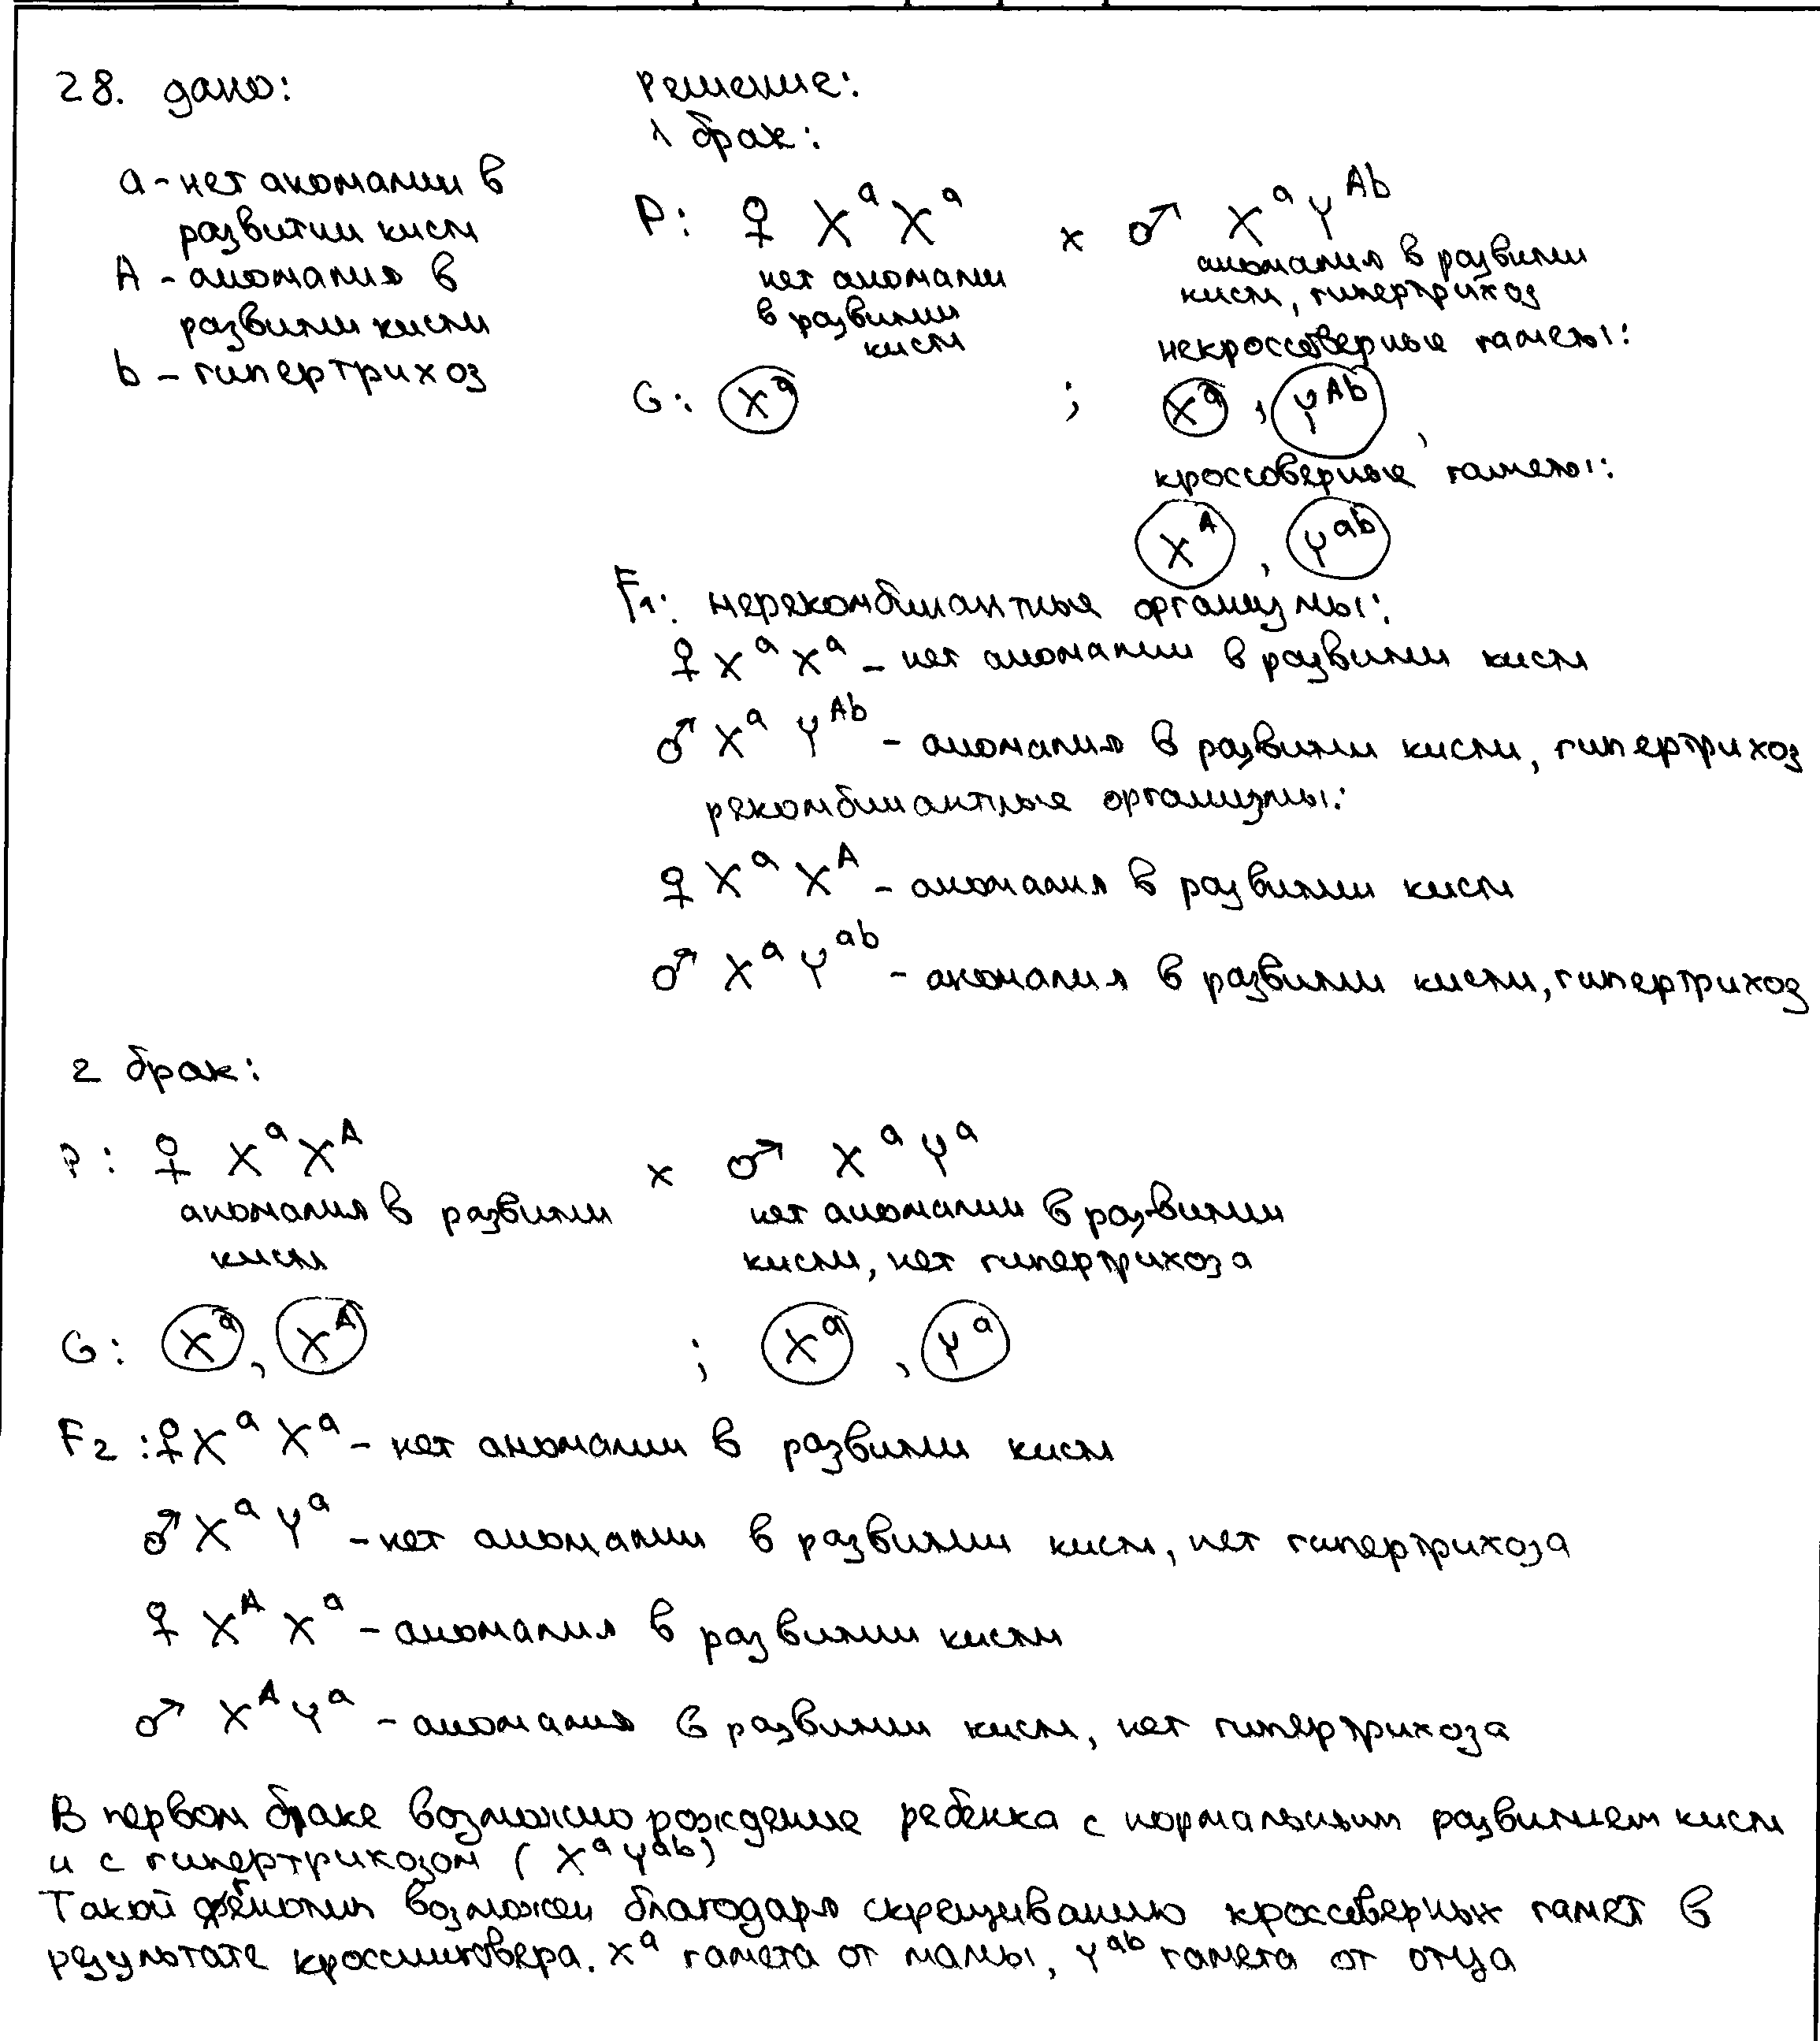 28. дано:
Решение:
1 брак:
a - нет аномалии в
развитии кисти
A - аномалия в
развитии кисти
b - гипертрихоз
P: ♀ XᵃXᵃ x ♂ XᵃYᴬᵇ
нет аномалии
в развитии
кисти
аномалия в развитии
кисти, гипертрихоз
некроссоверные гаметы:
G: Xᵃ ; Xᵃ, Yᴬᵇ,
кроссоверные гаметы:
Xᴬ, Yᵃᵇ
F₁: нерекомбинантные организмы:
♀ XᵃXᵃ - нет аномалии в развитии кисти
♂ XᵃYᴬᵇ - аномалия в развитии кисти, гипертрихоз
рекомбинантные организмы:
♀ XᵃXᴬ - аномалия в развитии кисти
♂ XᵃYᵃᵇ - аномалия в развитии кисти, гипертрихоз
2 брак:
P: ♀ XᵃXᴬ x ♂ XᵃYᵃ
аномалия в развитии
кисти
нет аномалии в развитии
кисти, нет гипертрихоза
G: Xᵃ, Xᴬ ; Xᵃ, Yᵃ
F₂: ♀ XᵃXᵃ - нет аномалии в развитии кисти
♂ XᵃYᵃ - нет аномалии в развитии кисти, нет гипертрихоза
♀ XᴬXᵃ - аномалия в развитии кисти
♂ XᴬYᵃ - аномалия в развитии кисти, нет гипертрихоза
В первом браке возможно рождение ребёнка с нормальным развитием кисти
и с гипертрихозом (XᵃYᵃᵇ)
Такой фенотип возможен благодаря скрещиванию кроссоверных гамет в
результате кроссинговера. Xᵃ гамета от мамы, Yᵃᵇ гамета от отца